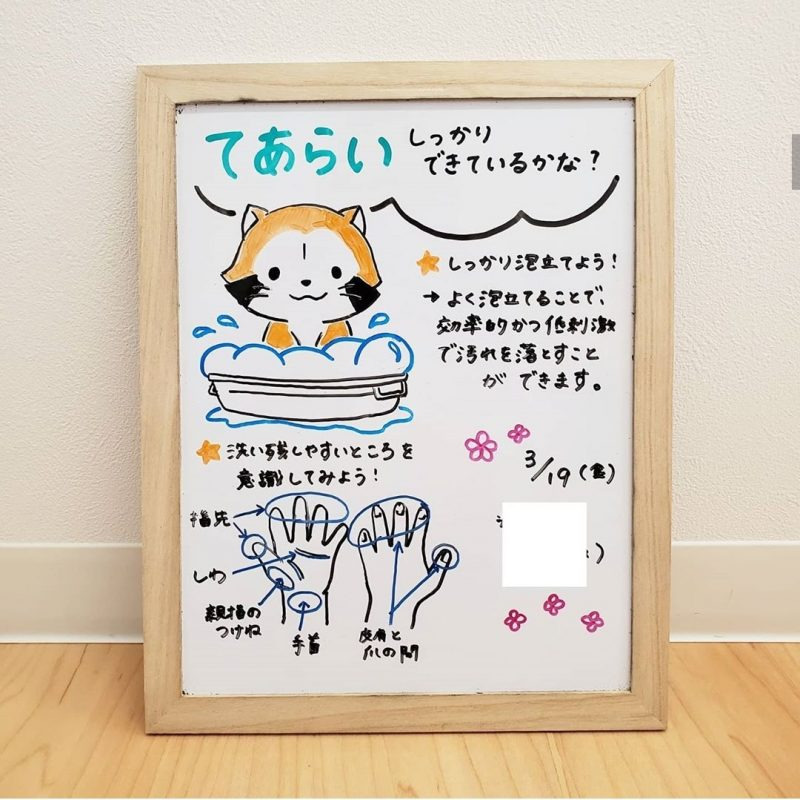 てあらい しっかり
できているかな？
★しっかり泡立てよう！
→よく泡立てることで、
効率的かつ低刺激
で汚れを落とすこと
ができます。
★洗い残しやすいところを
意識してみよう！
3/19（金）
指先
しわ
親指の
つけね
手首
皮膚と
爪の間